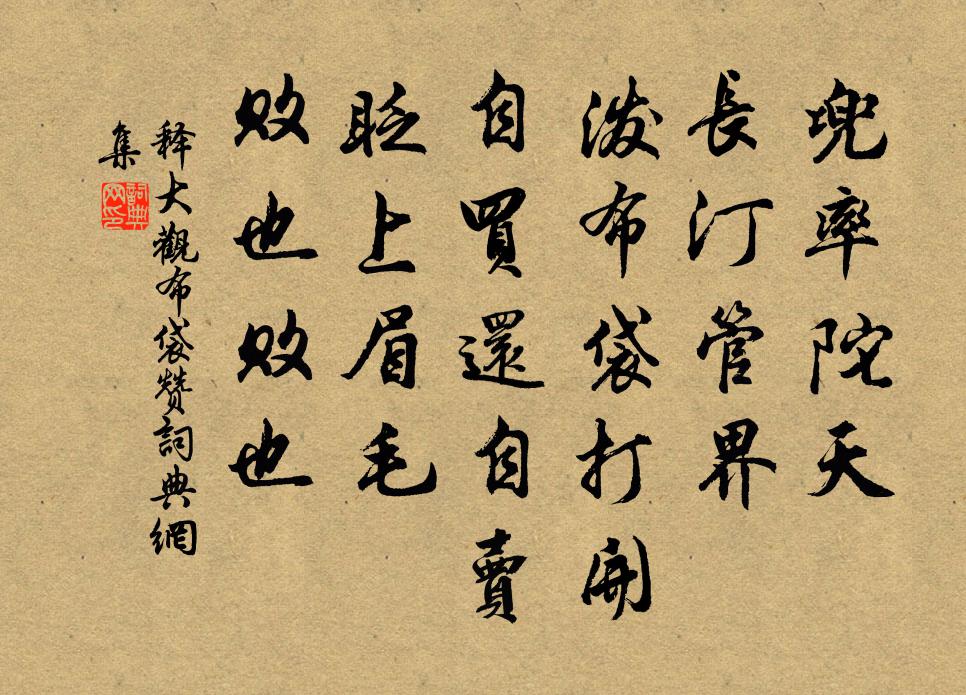 兜率陀天
長汀管界
潑布袋打開
自買還自賣
眨上眉毛
敗也敗也
释大觀布袋赞詞典網
集
詞典
网印